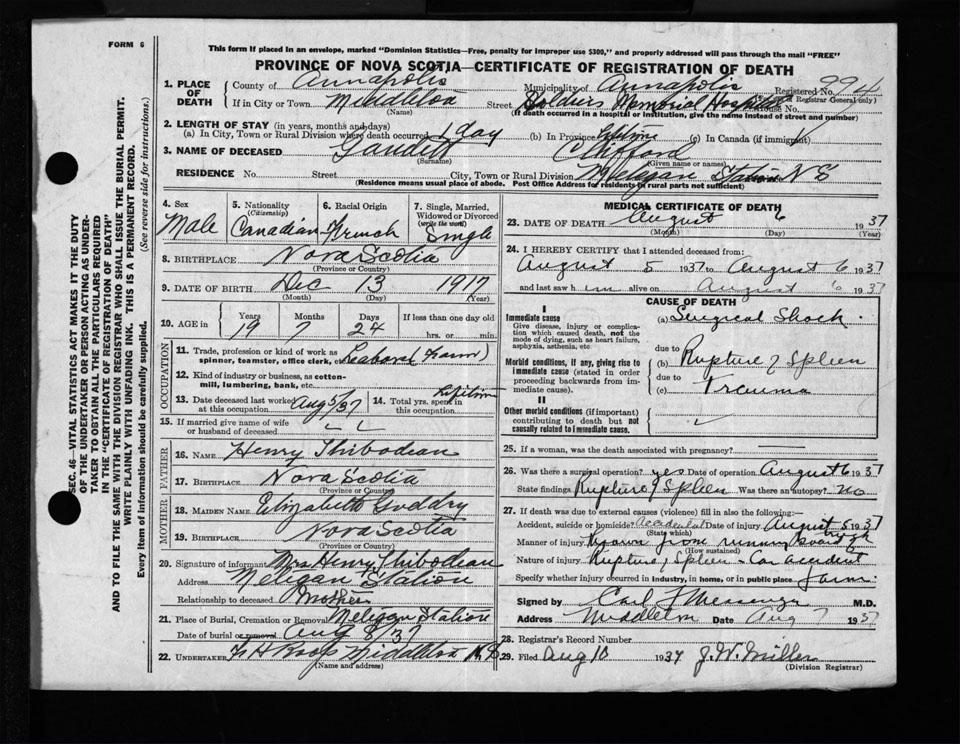 FORM 6
This form if placed in an envelope, marked "Dominion Statistics—Free, penalty for improper use $300," and properly addressed will pass through the mail "FREE"
PROVINCE OF NOVA SCOTIA—CERTIFICATE OF REGISTRATION OF DEATH
SEC. 46—VITAL STATISTICS ACT MAKES IT THE DUTY
OF THE UNDERTAKER OR PERSON ACTING AS UNDER-
TAKER TO OBTAIN ALL THE PARTICULARS REQUIRED
IN THE "CERTIFICATE OF REGISTRATION OF DEATH"
AND TO FILE THE SAME WITH THE DIVISION REGISTRAR WHO SHALL ISSUE THE BURIAL PERMIT.
WRITE PLAINLY WITH UNFADING INK. THIS IS A PERMANENT RECORD.
Every item of information should be carefully supplied. (See reverse side for instructions.)
1. PLACE OF DEATH County of Annapolis Municipality of Annapolis Registered No. 994
(For use of Registrar General only)
If in City or Town Middleton Street Soldiers Memorial Hospital House No.
(Name) (If death occurred in a hospital or institution, give the name instead of street and number)
2. LENGTH OF STAY (in years, months and days)
(a) In City, Town or Rural Division where death occurred 1 day (b) In Province lifetime (c) In Canada (if immigrant)
3. NAME OF DECEASED Gaudett Clifford
(Surname) (Given name or names)
RESIDENCE No. Street City, Town or Rural Division Meteghan Station N S
(Residence means usual place of abode. Post Office Address for residents in rural parts not sufficient)
4. Sex Male
5. Nationality (Citizenship) Canadian
6. Racial Origin French
7. Single, Married, Widowed or Divorced (write the word) Single
8. BIRTHPLACE Nova Scotia
(Province or Country)
9. DATE OF BIRTH Dec 13 1917
(Month) (Day) (Year)
10. AGE in Years 19 Months 7 Days 24 If less than one day
hrs. or min.
OCCUPATION
11. Trade, profession or kind of work as spinner, teamster, office clerk, etc. Laborer (Farm)
12. Kind of industry or business, as cotton-mill, lumbering, bank, etc.
13. Date deceased last worked at this occupation Aug 5/37 14. Total yrs. spent in this occupation lifetime
15. If married give name of wife or husband of deceased
FATHER
16. NAME Henry Thibodeau
17. BIRTHPLACE Nova Scotia
(Province or Country)
MOTHER
18. MAIDEN NAME Elizabeth
19. BIRTHPLACE Nova Scotia
(Province or Country)
20. Signature of informant Mrs Henry Thibodeau
Address Station
Relationship to deceased Mother
21. Place of Burial, Cremation or Removal Station
Date of burial or removal Aug 8/37
22. UNDERTAKER Middleton N.S.
(Name and address)
MEDICAL CERTIFICATE OF DEATH
23. DATE OF DEATH August 6 1937
(Month) (Day) (Year)
24. I HEREBY CERTIFY that I attended deceased from:
August 5 1937 to August 6 1937
and last saw him alive on August 6 1937
CAUSE OF DEATH
I
Immediate cause
Give disease, injury or complication which caused death, not the mode of dying, such as heart failure, asphyxia, asthenia, etc
(a) Surgical Shock.
due to
Morbid conditions, if any, giving rise to immediate cause (stated in order proceeding backwards from immediate cause).
(b) Rupture of Spleen
due to
(c) Trauma
II
Other morbid conditions (if important) contributing to death but not causally related to immediate cause.
25. If a woman, was the death associated with pregnancy?
26. Was there a surgical operation? yes Date of operation August 6 1937
State findings Rupture of Spleen Was there an autopsy? No
27. If death was due to external causes (violence) fill in also the following:—
Accident, suicide or homicide? Accidental Date of injury August 5 1937
(State which)
Manner of injury Thrown from running board of truck
(How sustained)
Nature of injury Rupture of Spleen - Car accident
Specify whether injury occurred in industry, in home, or in public place farm.
Signed by Carl Messenger M.D.
Address Middleton Date Aug 7 1937
28. Registrar's Record Number
29. Filed Aug 10 1937 J. W. Miller
(Division Registrar)